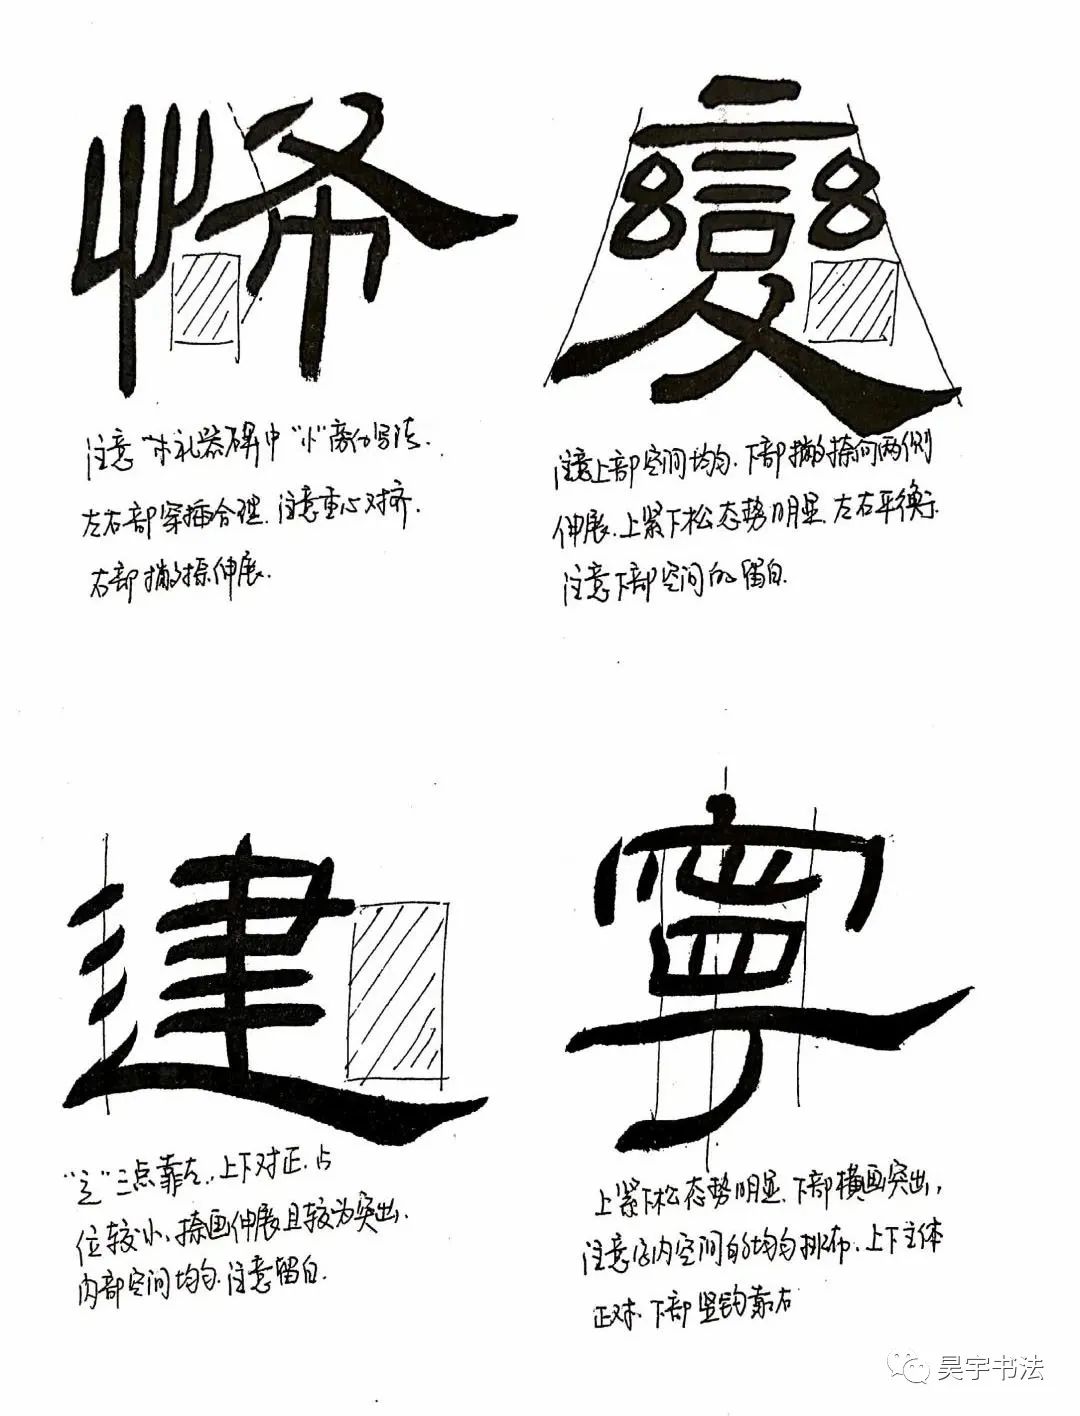 悕
注意《礼器碑》中“忄”旁的写法.
左右部穿插合理.注意重心对齐.
右部撇捺伸展.
變
注意上部空间均匀.下部撇捺向两侧
伸展.上紧下松态势明显.左右平衡.
注意下部空间的留白.
建
“辶”三点靠左.上下对正.占
位较小、捺画伸展且较为突出.
内部空间均匀.注意留白.
寧
上紧下松态势明显.下部横画突出，
注意字内空间的均匀排布.上下主体
正对.下部竖钩靠右
昊宇书法